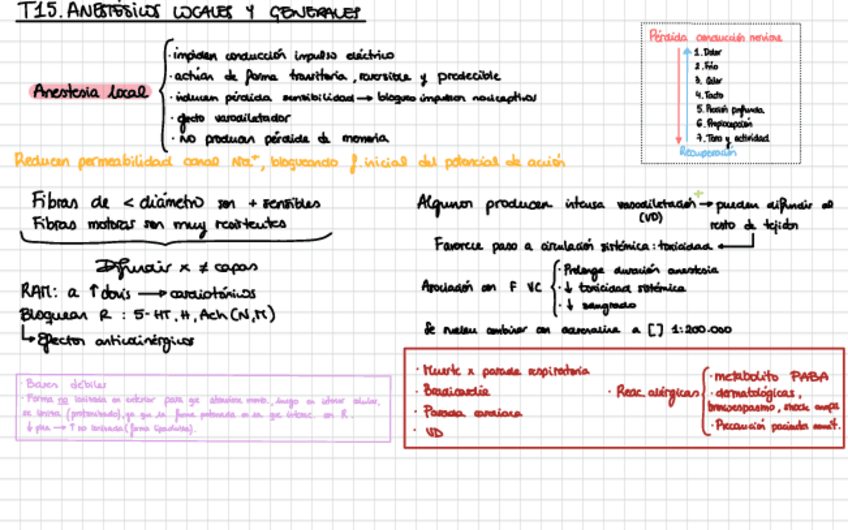 T15. ANESTÉSICOS LOCALES Y GENERALES
Anestesia local
· impiden conducción impulso eléctrico
· actúan de forma transitoria, reversible y predecible
· inducen pérdida sensibilidad → bloqueo impulsos nociceptivos
· efecto vasodilatador
· no producen pérdida de memoria
Pérdida conducción nerviosa
1. Dolor
2. Frío
3. Calor
4. Tacto
5. Presión profunda
6. Propiocepción
7. Tono y actividad
Recuperación
Reducen permeabilidad canal Na⁺, bloqueando f. inicial del potencial de acción
Fibras de < diámetro son + sensibles
Fibras motoras son muy resistentes
Difundir x ≠ capas
RAM: a ↑ dosis → cardiotónicos
Bloquean R : 5-HT, H, Ach (N, M)
↳ Efectos anticolinérgicos
Algunos producen intensa vasodilatación → pueden difundir al
(VD) resto de tejidos
Favorece paso a circulación sistémica: toxicidad
Asociación con F VC
· Prolonga duración anestesia
· ↓ toxicidad sistémica
· ↓ sangrado
Se suelen combinar con adrenalina a [] 1:200.000
· Bases débiles
· Forma no ionizada en exterior para que atraviese memb., luego en interior celular,
se ioniza (protonitado), ya que la forma protonada es la que interac. con R.
↓ pka → ↑ no ionizada (forma liposoluble).
· Muerte x parada respiratoria
· Bradicardia
· Parada cardiaca
· VD
· Reac. alérgicas
· metabolito PABA
· dermatológicas,
broncoespasmo, shock
· Precaución paciente